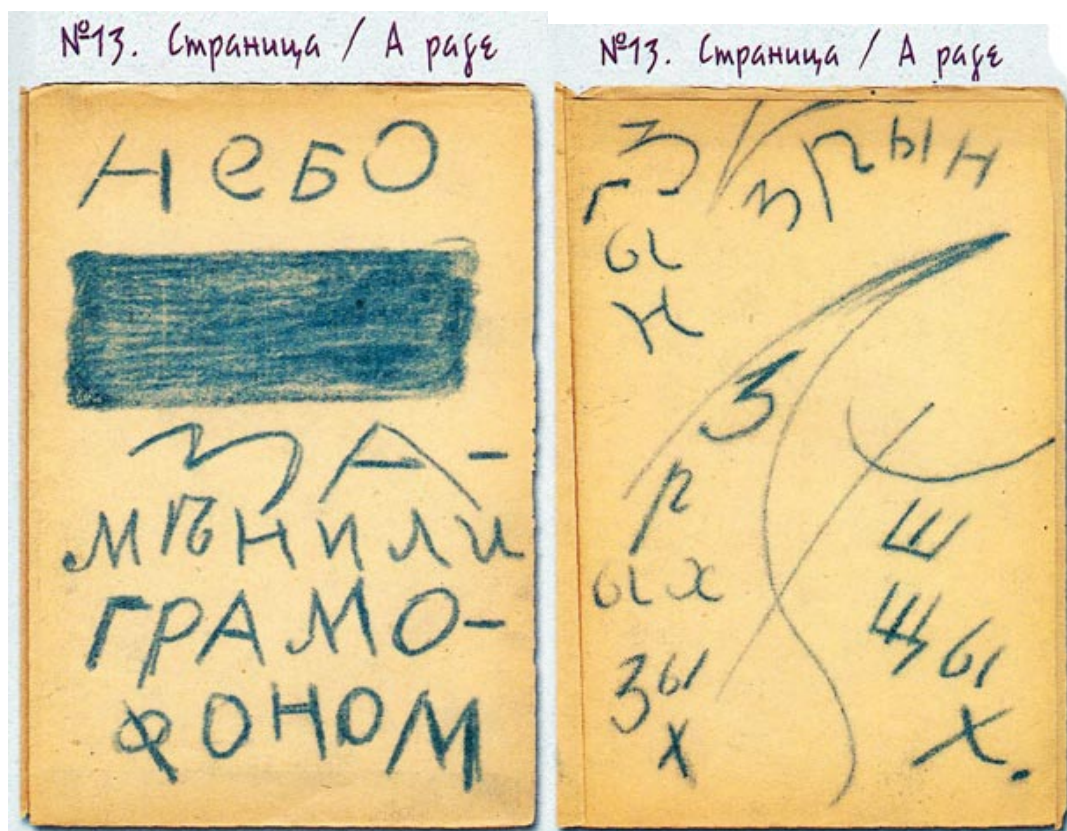 №13. Страница / A page
НеБО
ЗА-
МѢНИЛИ
ГРАМО-
ФОНОМ
№13. Страница / A page
З
Г
Ы
Н
ЗРЫН
З
Р
ЫХ
ЗЫ
Х
У
Ш
Щ
Ы
Х.